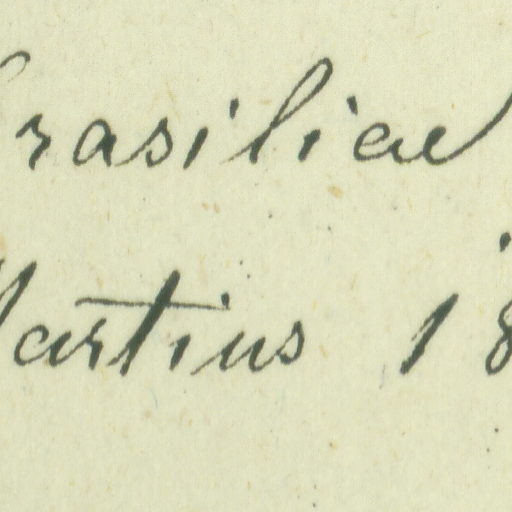 rasiliae
artius 18